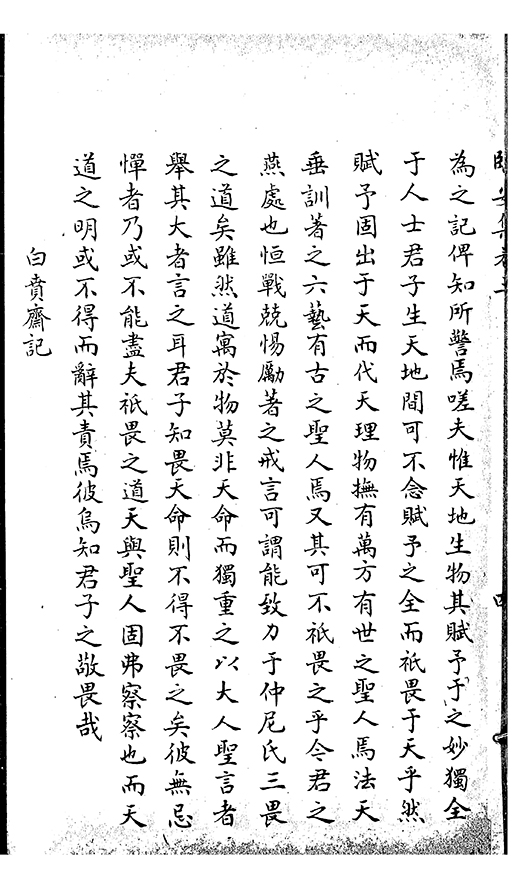 為之記俾知所警焉嗟夫惟天地生物其賦予于之妙獨全
于人士君子生天地間可不念賦予之全而祇畏于天乎然
賦予固出于天而代天理物撫有萬方有世之聖人焉法天
垂訓著之六藝有古之聖人焉又其可不祇畏之乎今君之
燕處也恒戰兢惕勵著之戒言可謂能致力于仲尼氏三畏
之道矣雖然道寓於物莫非天命而獨重之以大人聖言者
舉其大者言之耳君子知畏天命則不得不畏之矣彼無忌
憚者乃或不能盡夫祇畏之道天與聖人固弗察察也而天
道之明或不得而辭其責焉彼烏知君子之敬畏哉
白賁齋記